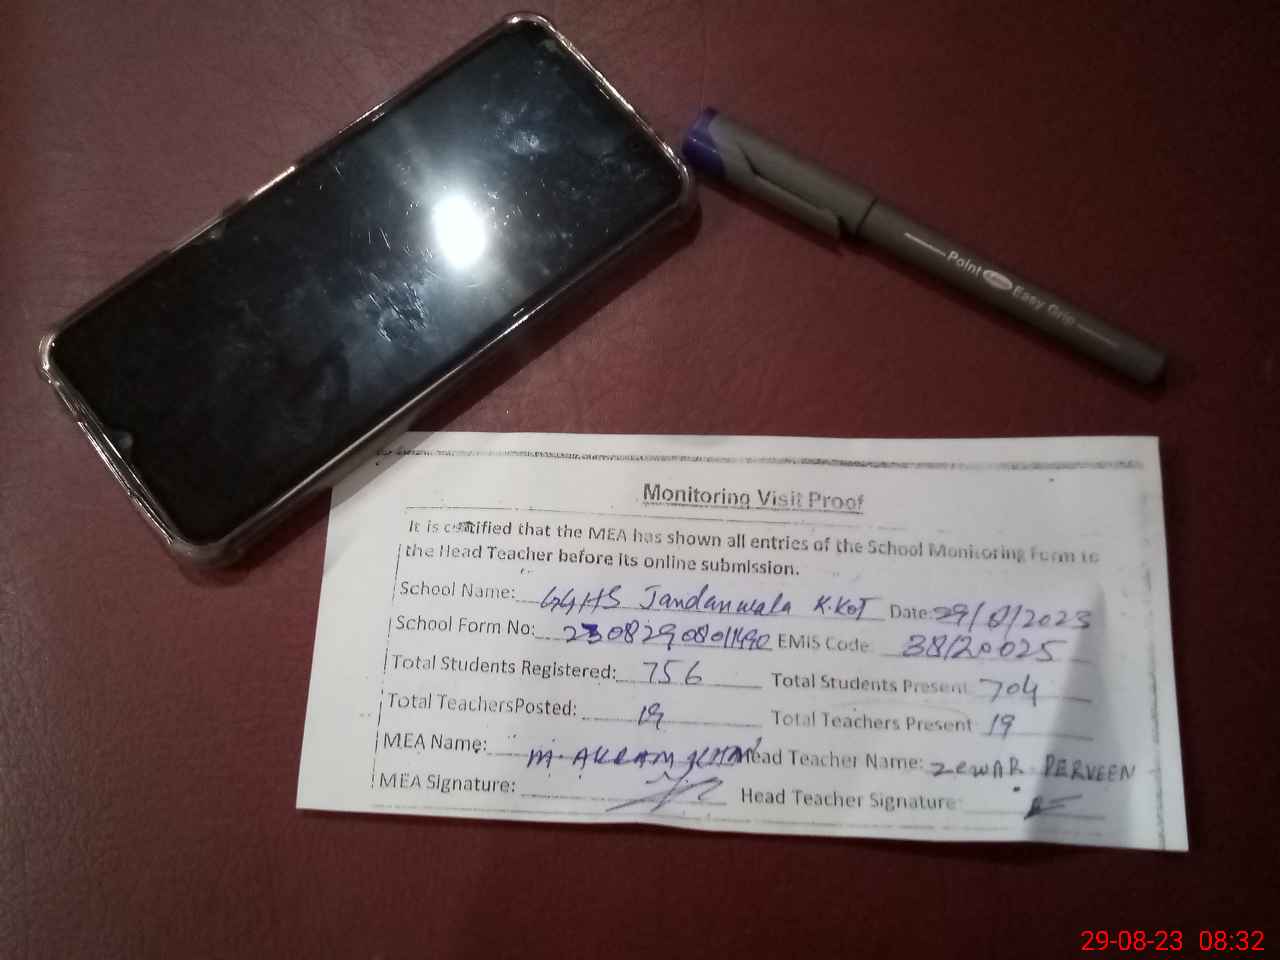 Point Easy Grip
Monitoring Visit Proof
It is certified that the MEA has shown all entries of the School Monitoring Form to
the Head Teacher before its online submission.
School Name: GGHS Jandanwala K.Kot Date: 29/8/2023
School Form No: EMIS Code: 38120025
Total Students Registered: 756 Total Students Present 704
Total TeachersPosted: 19 Total Teachers Present 19
MEA Name: M. AKRAM KHAN Head Teacher Name: ZEWAR PERVEEN
MEA Signature: Head Teacher Signature:
29-08-23 08:32